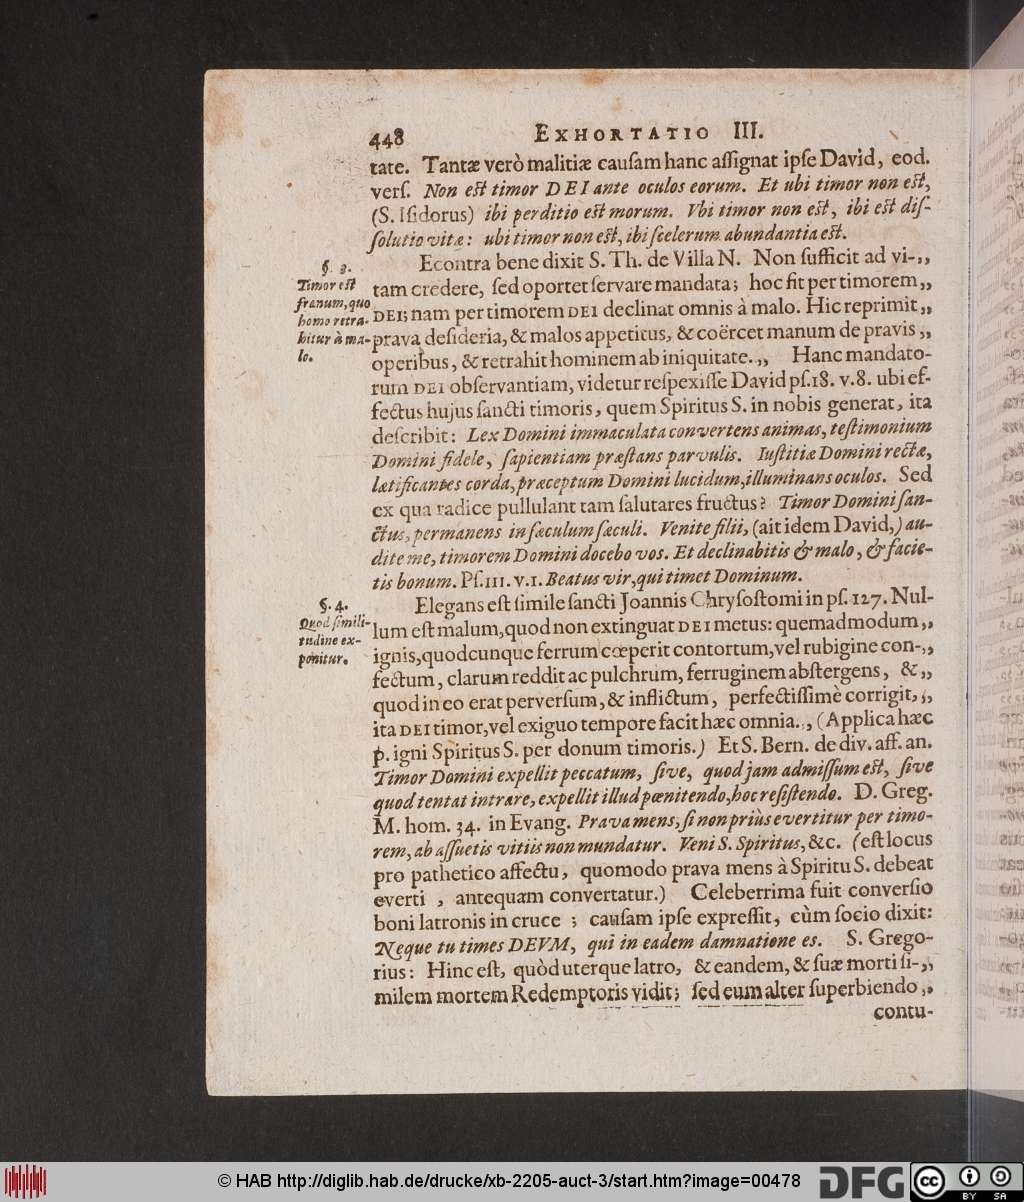 448 EXHORTATIO III.
tate. Tantæ verò malitiæ cauſam hanc aſſignat ipſe David, eod.
verſ. Non eſt timor DEI ante oculos eorum. Et ubi timor non eſt,
(S. Iſidorus) ibi perditio eſt morum. Vbi timor non eſt, ibi eſt diſ-
ſolutio vitæ: ubi timor non eſt, ibi ſcelerum abundantia eſt.
§. 3.
Timor eſt
frænum, quo
homo retra-
hitur à ma-
lo.
Econtra bene dixit S. Th. de Villa N. Non ſufficit ad vi-„
tam credere, ſed oportet ſervare mandata; hoc fit per timorem„
DEI; nam per timorem DEI declinat omnis à malo. Hic reprimit„
prava deſideria, & malos appetitus, & coërcet manum de pravis„
operibus, & retrahit hominem ab iniquitate.„ Hanc mandato-
rum DEI obſervantiam, videtur reſpexiſſe David pſ.18. v.8. ubi ef-
fectus hujus ſancti timoris, quem Spiritus S. in nobis generat, ita
deſcribit: Lex Domini immaculata convertens animas, teſtimonium
Domini fidele, ſapientiam præſtans parvulis. Iuſtitiæ Domini rectæ,
lætificantes corda, præceptum Domini lucidum, illuminans oculos. Sed
ex qua radice pullulant tam ſalutares fructus? Timor Domini ſan-
ctus, permanens in ſæculum ſæculi. Venite filii, (ait idem David,) au-
dite me, timorem Domini docebo vos. Et declinabitis & malo, & facie-
tis bonum. Pſ.111. v.1. Beatus vir, qui timet Dominum.
§. 4.
Quod ſimili-
tudine ex-
ponitur.
Elegans eſt ſimile ſancti Joannis Chryſoſtomi in pſ. 127. Nul-
lum eſt malum, quod non extinguat DEI metus: quemadmodum„
ignis, quodcunque ferrum cœperit contortum, vel rubigine con-„
fectum, clarum reddit ac pulchrum, ferruginem abſtergens, &„
quod in eo erat perverſum, & inflictum, perfectiſſimè corrigit,„
ita DEI timor, vel exiguo tempore facit hæc omnia.„ (Applica hæc
p. igni Spiritus S. per donum timoris.) Et S. Bern. de div. aff. an.
Timor Domini expellit peccatum, ſive, quod jam admiſſum eſt, ſive
quod tentat intrare, expellit illud pœnitendo, hoc reſiſtendo. D. Greg.
M. hom. 34. in Evang. Prava mens, ſi non priùs evertitur per timo-
rem, ab aſſuetis vitiis non mundatur. Veni S. Spiritus, &c. (eſt locus
pro pathetico affectu, quomodo prava mens à Spiritu S. debeat
everti, antequam convertatur.) Celeberrima fuit converſio
boni latronis in cruce; cauſam ipſe expreſſit, cùm ſocio dixit:
Neque tu times DEVM, qui in eadem damnatione es. S. Grego-
rius: Hinc eſt, quòd uterque latro, & eandem, & ſuæ morti ſi-„
milem mortem Redemptoris vidit; ſed eum alter ſuperbiendo„
contu-
© HAB http://diglib.hab.de/drucke/xb-2205-auct-3/start.htm?image=00478
DFG
cc BY SA